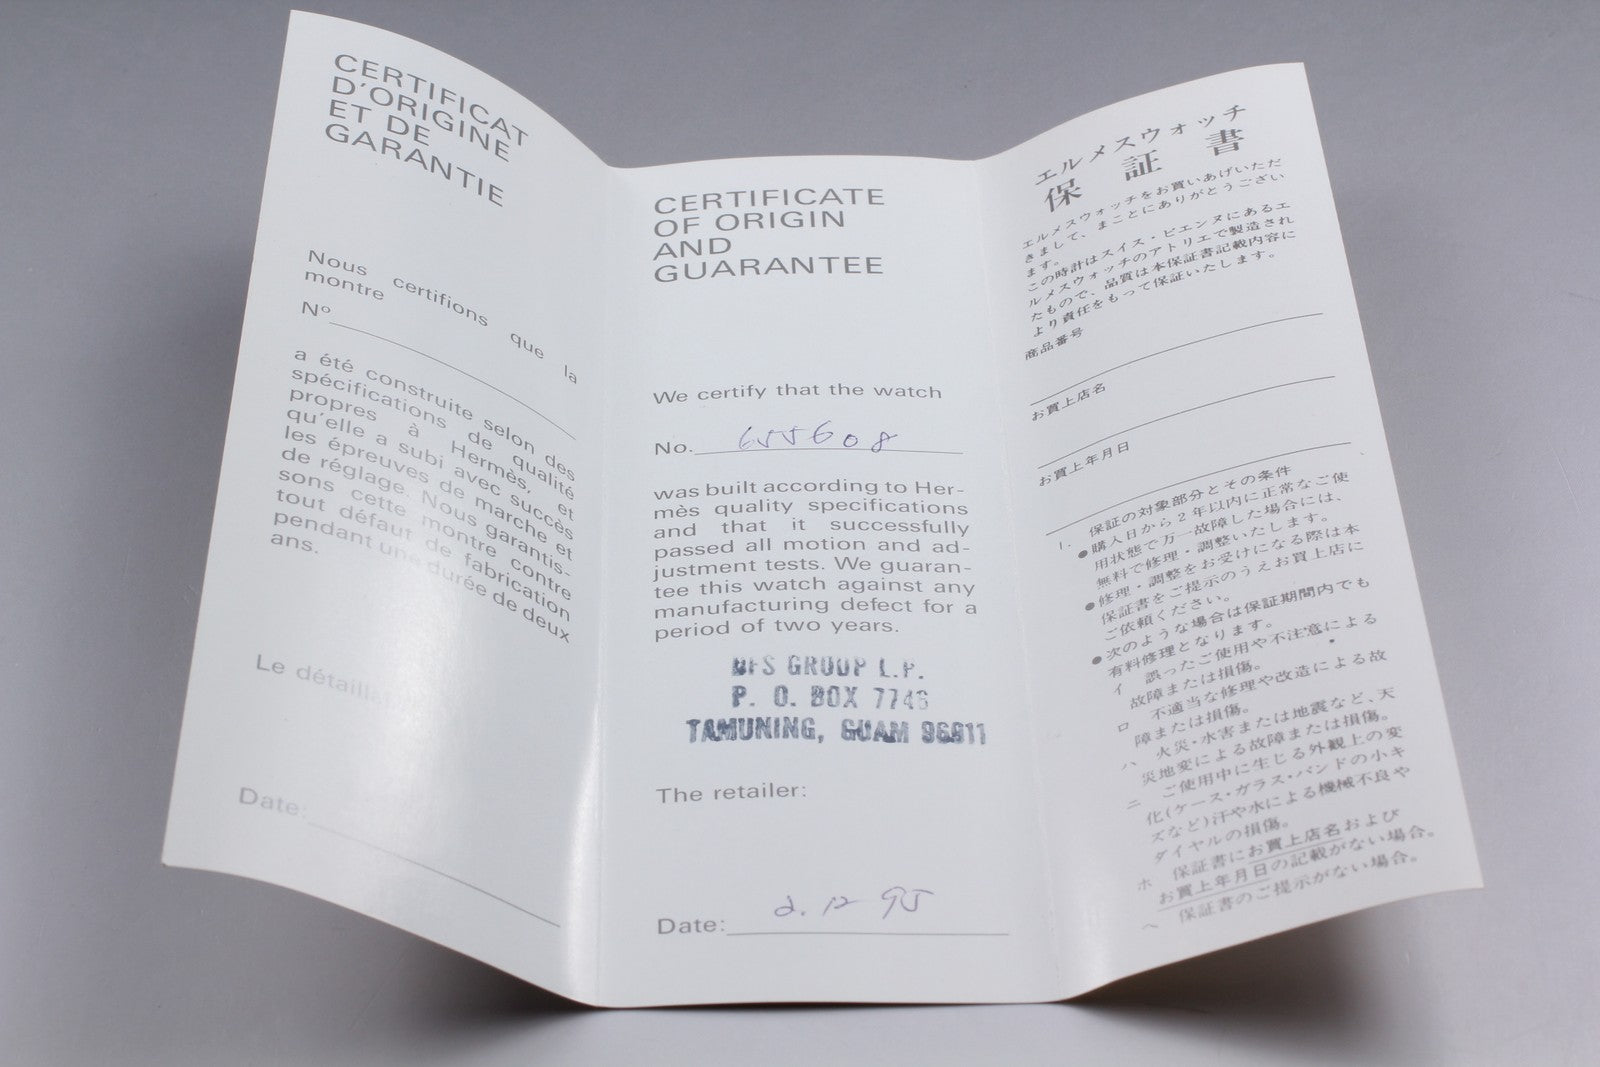 CERTIFICAT
D'ORIGINE
ET DE
GARANTIE
Nous certifions que la
montre
Nº
a été construite selon des
spécifications de qualité
propres à Hermès, et
qu'elle a subi avec succès
les épreuves de marche et
de réglage. Nous garantis-
sons cette montre contre
tout défaut de fabrication
pendant une durée de deux
ans.
Le détaillant
Date:
CERTIFICATE
OF ORIGIN
AND
GUARANTEE
We certify that the watch
No. 655608
was built according to Her-
mès quality specifications
and that it successfully
passed all motion and ad-
justment tests. We guaran-
tee this watch against any
manufacturing defect for a
period of two years.
DFS GROUP L.P.
P. O. BOX 7746
TAMUNING, GUAM 96911
The retailer:
Date: 2. 12 95
エルメスウォッチ
保証書
エルメスウォッチをお買いあげいただ
きまして、まことにありがとうござい
ます。
この時計はスイス・ビエンヌにあるエ
ルメスウォッチのアトリエで製造され
たもので、品質は本保証書記載内容に
より責任をもって保証いたします。
商品番号
お買上店名
お買上年月日
1. 保証の対象部分とその条件
●購入日から2年以内に正常なご使
用状態で万一故障した場合には、
無料で修理・調整いたします。
●修理・調整をお受けになる際は本
保証書をご提示のうえお買上店に
ご依頼ください。
●次のような場合は保証期間内でも
有料修理となります。
イ 誤ったご使用や不注意による
故障または損傷。
ロ 不適当な修理や改造による故
障または損傷。
ハ 火災・水害または地震など、天
災地変による故障または損傷。
ニ ご使用中に生じる外観上の変
化(ケース・ガラス・バンドの小キ
ズなど)汗や水による機械不良や
ダイヤルの損傷。
ホ 保証書にお買上店名および
お買上年月日の記載がない場合。
ヘ 保証書のご提示がない場合。